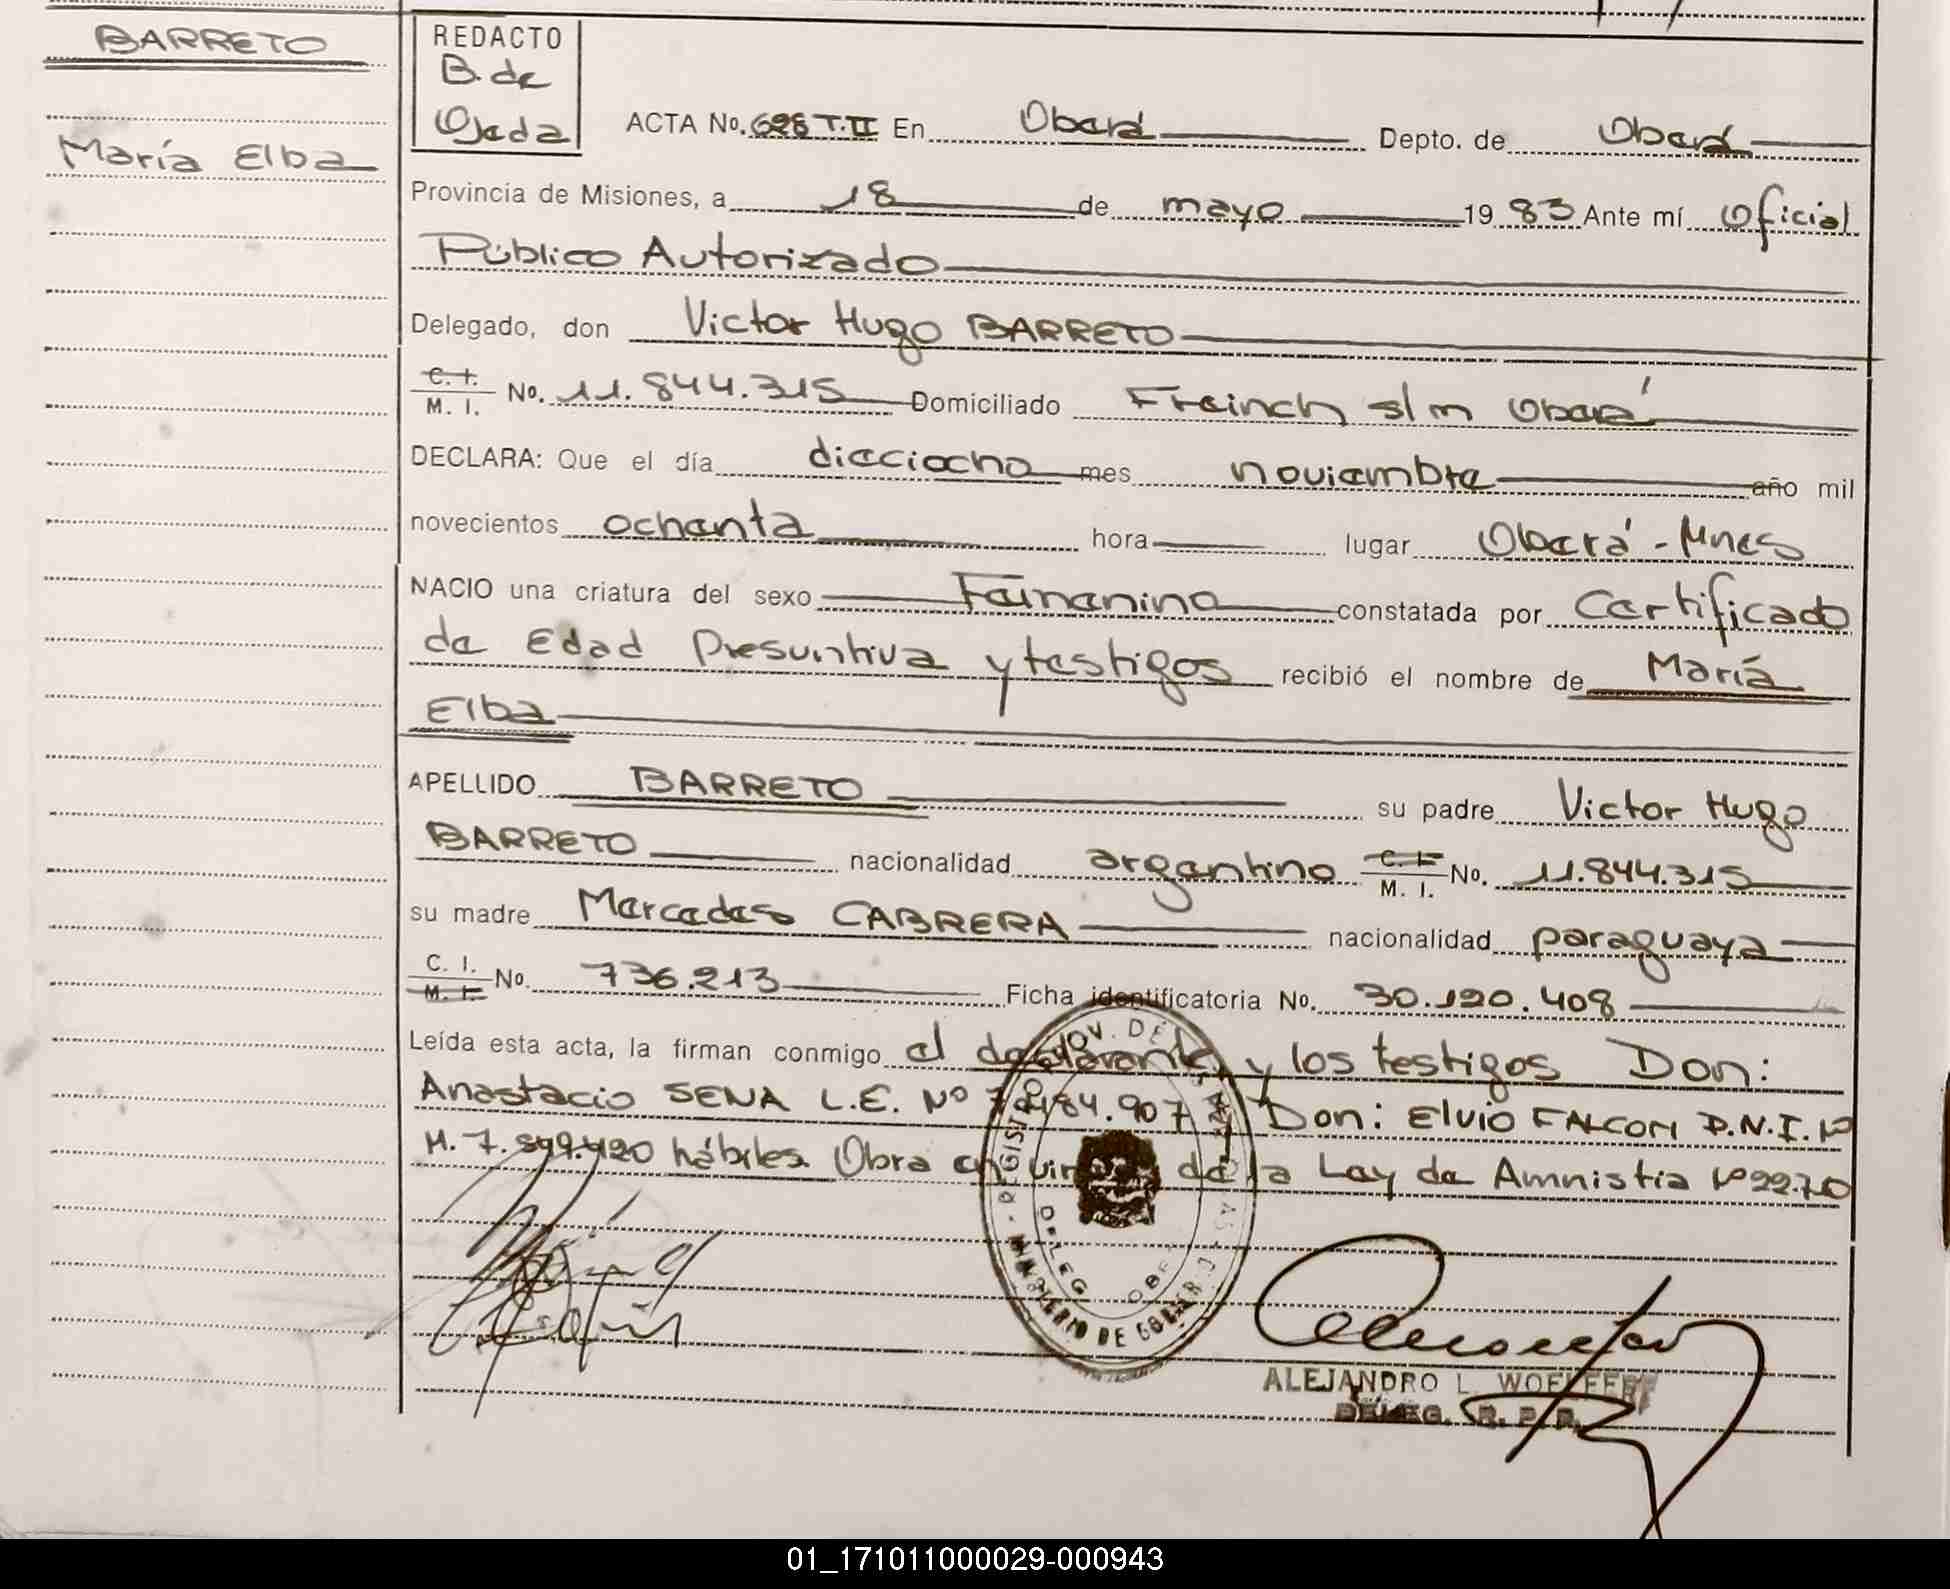 BARRETO
María Elba
REDACTO
B. de
Ojeda
ACTA No. 698 T.II En Oberá Depto. de Oberá
Provincia de Misiones, a 18 de mayo 19 83 Ante mí Oficial
Público Autorizado
Delegado, don Victor Hugo BARRETO
C. I. / M. I. No. 11.844.315 Domiciliado Freinch s/n Oberá
DECLARA: Que el día dieciocho mes noviembre año mil
novecientos ochenta hora lugar Oberá - Mnes
NACIO una criatura del sexo Femenino constatada por Certificado
de Edad Presuntiva y testigos recibió el nombre de María
Elba
APELLIDO BARRETO su padre Victor Hugo
BARRETO nacionalidad argentino C. I. / M. I. No. 11.844.315
su madre Mercedes CABRERA nacionalidad paraguaya
C. I. / M. I. No. 736.213 Ficha identificatoria No. 30.120.408
Leída esta acta, la firman conmigo el declarante y los testigos Don:
Anastacio SENA L.E. Nº 7.484.907 Don: Elvio FALCON D.N.I. Nº
M. 7. 420 hábiles. Obra en virtud de la Ley de Amnistia Nº 2270
MINISTERIO DE GOBIERNO
ALEJANDRO L. WOELFERT
DELEG. R. P. P.
01_171011000029-000943